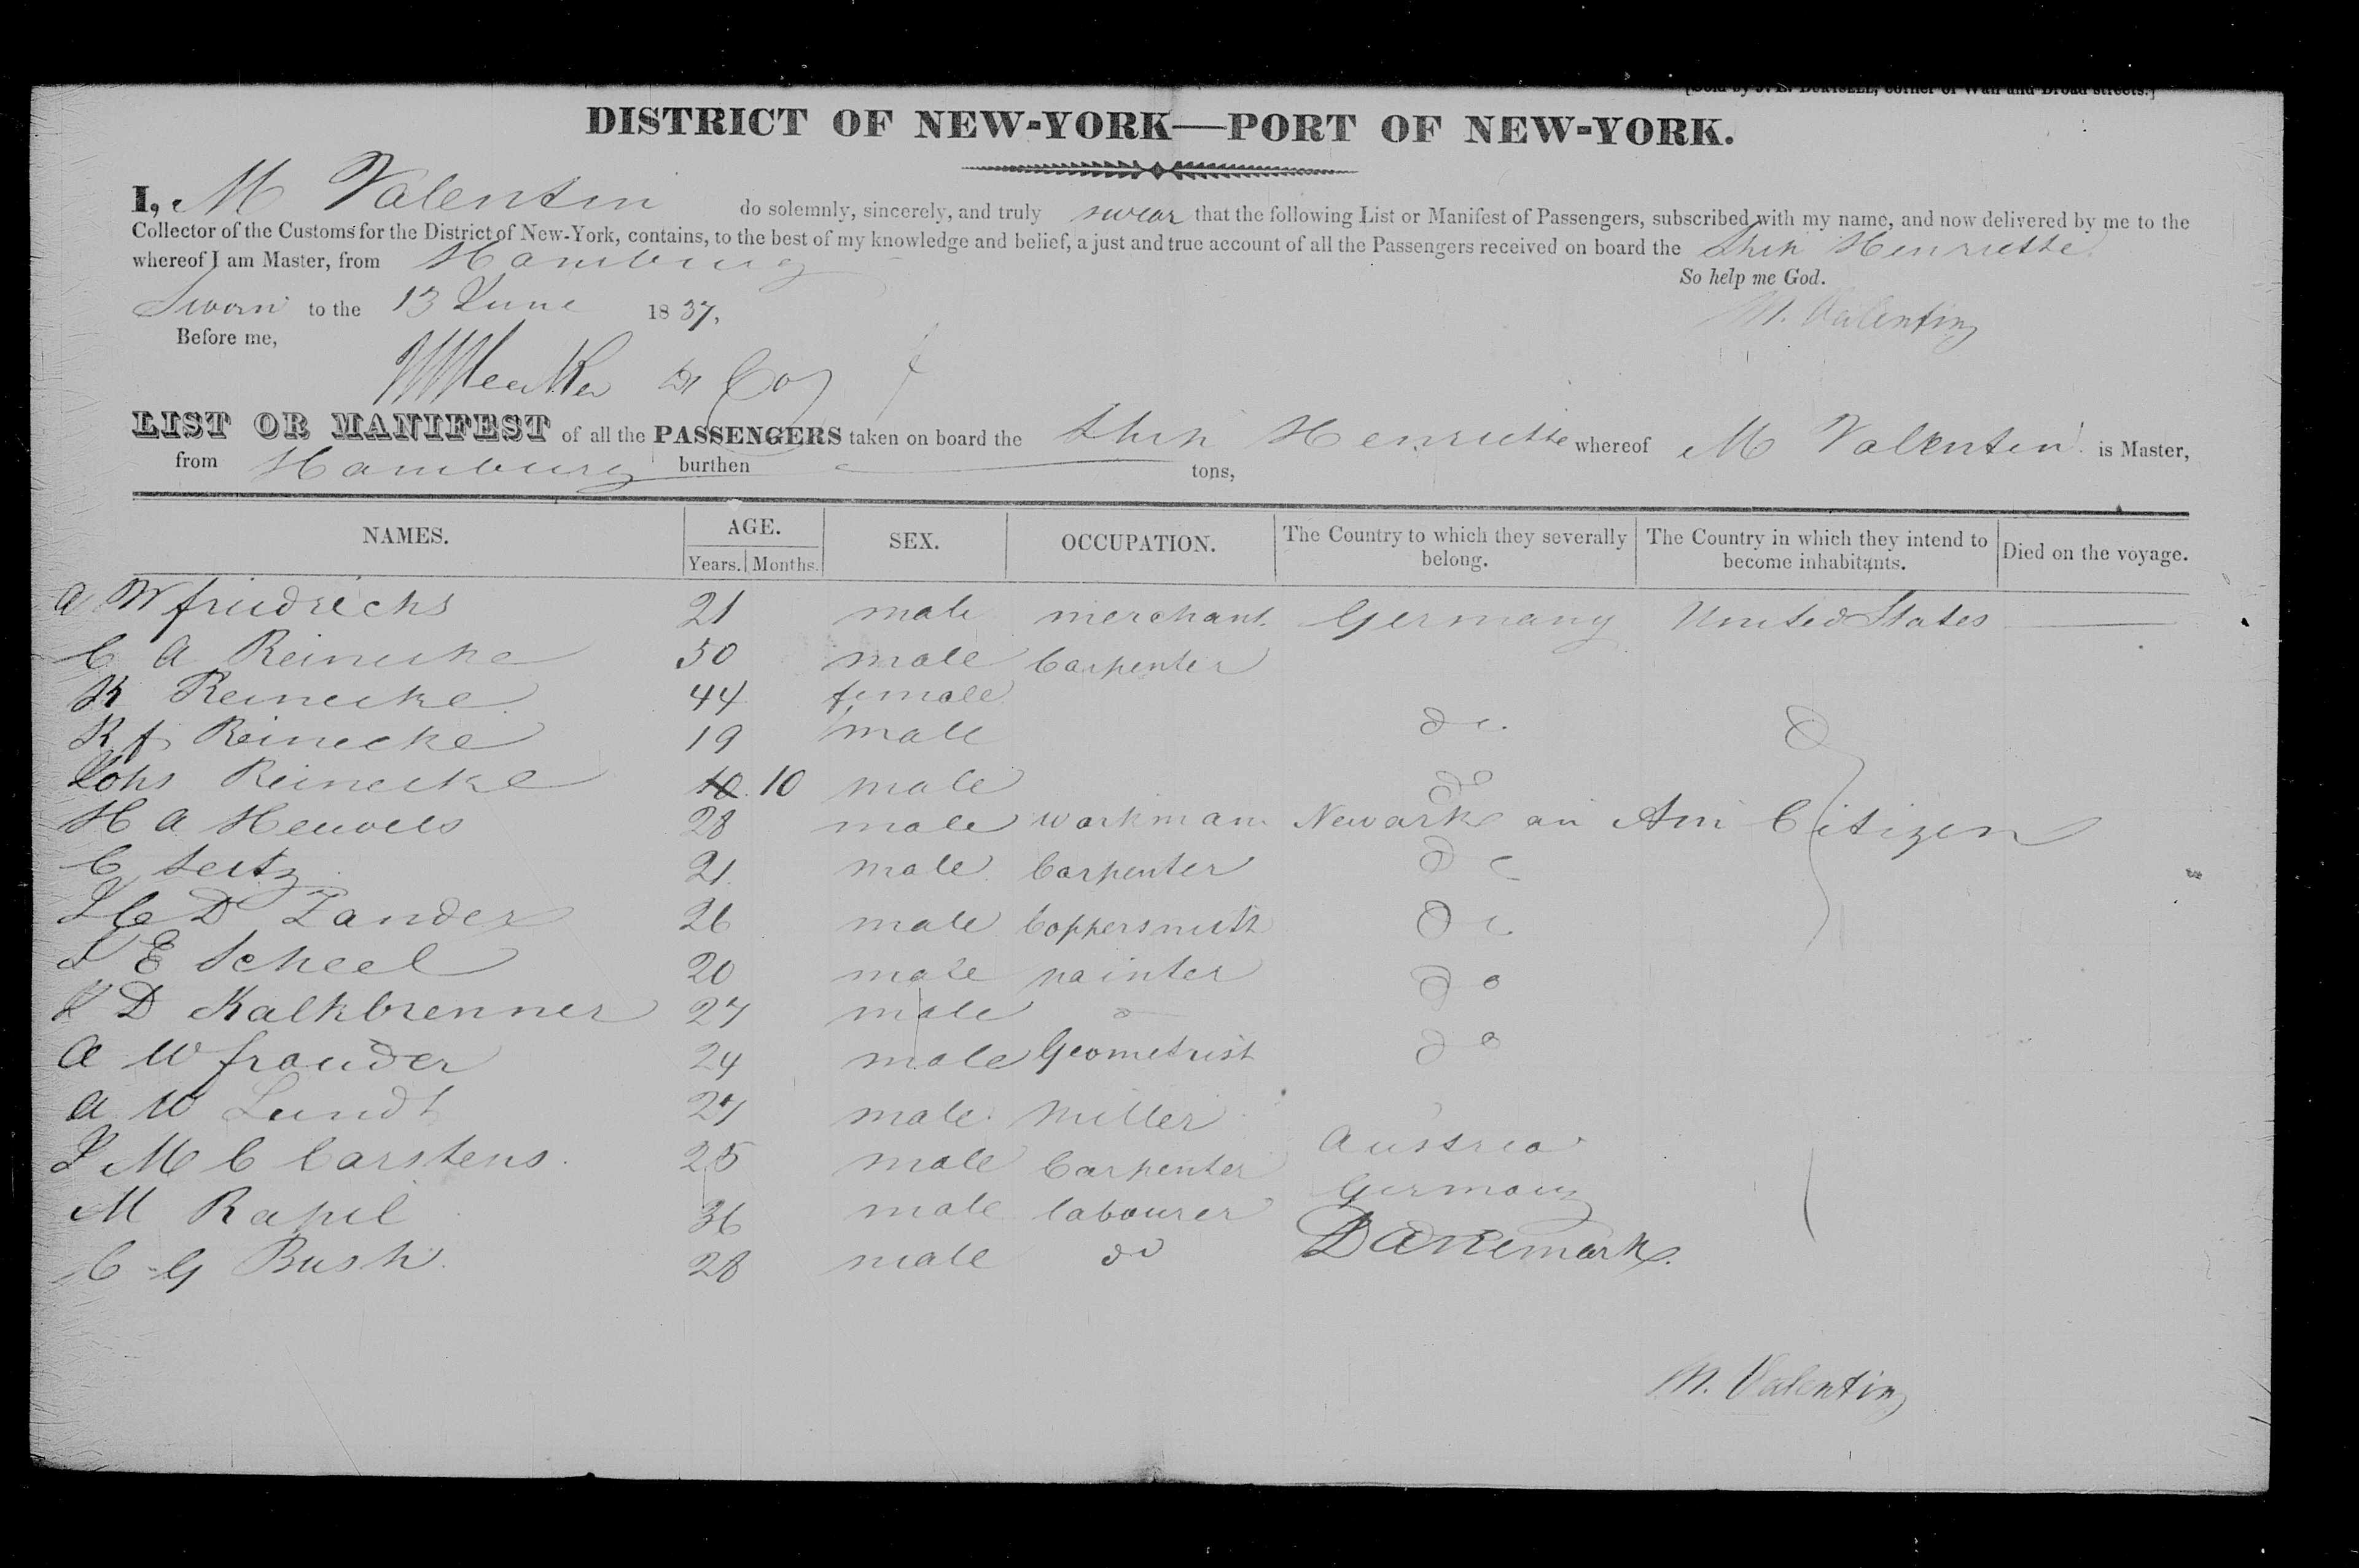 [Sold by J. E. BURTSELL, corner of Wall and Broad streets.]
DISTRICT OF NEW-YORK—PORT OF NEW-YORK.
I, M Valentin do solemnly, sincerely, and truly swear that the following List or Manifest of Passengers, subscribed with my name, and now delivered by me to the
Collector of the Customs for the District of New-York, contains, to the best of my knowledge and belief, a just and true account of all the Passengers received on board the Ship Henriette
whereof I am Master, from Hamburg
So help me God.
Sworn to the 13 June 1837,
M. Valentin
Before me,
LIST OR MANIFEST of all the PASSENGERS taken on board the Ship Henriette whereof M Valentin is Master,
from Hamburg burthen tons,
NAMES. AGE. Years. Months. SEX. OCCUPATION. The Country to which they severally belong. The Country in which they intend to become inhabitants. Died on the voyage.
A W friedrichs 21 male merchant Germany United States
C A Reinecke 50 male Carpenter
R Reinecke 44 female
R f Reinecke 19 male do
Johs Reinecke 10 10 male do
H A 28 male workman Newark an Am Citizen
C Seitz 21 male Carpenter do
J C D Zander 26 male Coppersmith do
J E Scheel 20 male painter do
J D Kalkbrenner 27 male do
A W frauder 24 male Geometrist do
A W Lundt 27 male Miller
J M C Carstens 25 male Carpenter Austria
M Rapil 36 male labourer Germany
C G Bush 28 male do Danemark.
M. Valentin